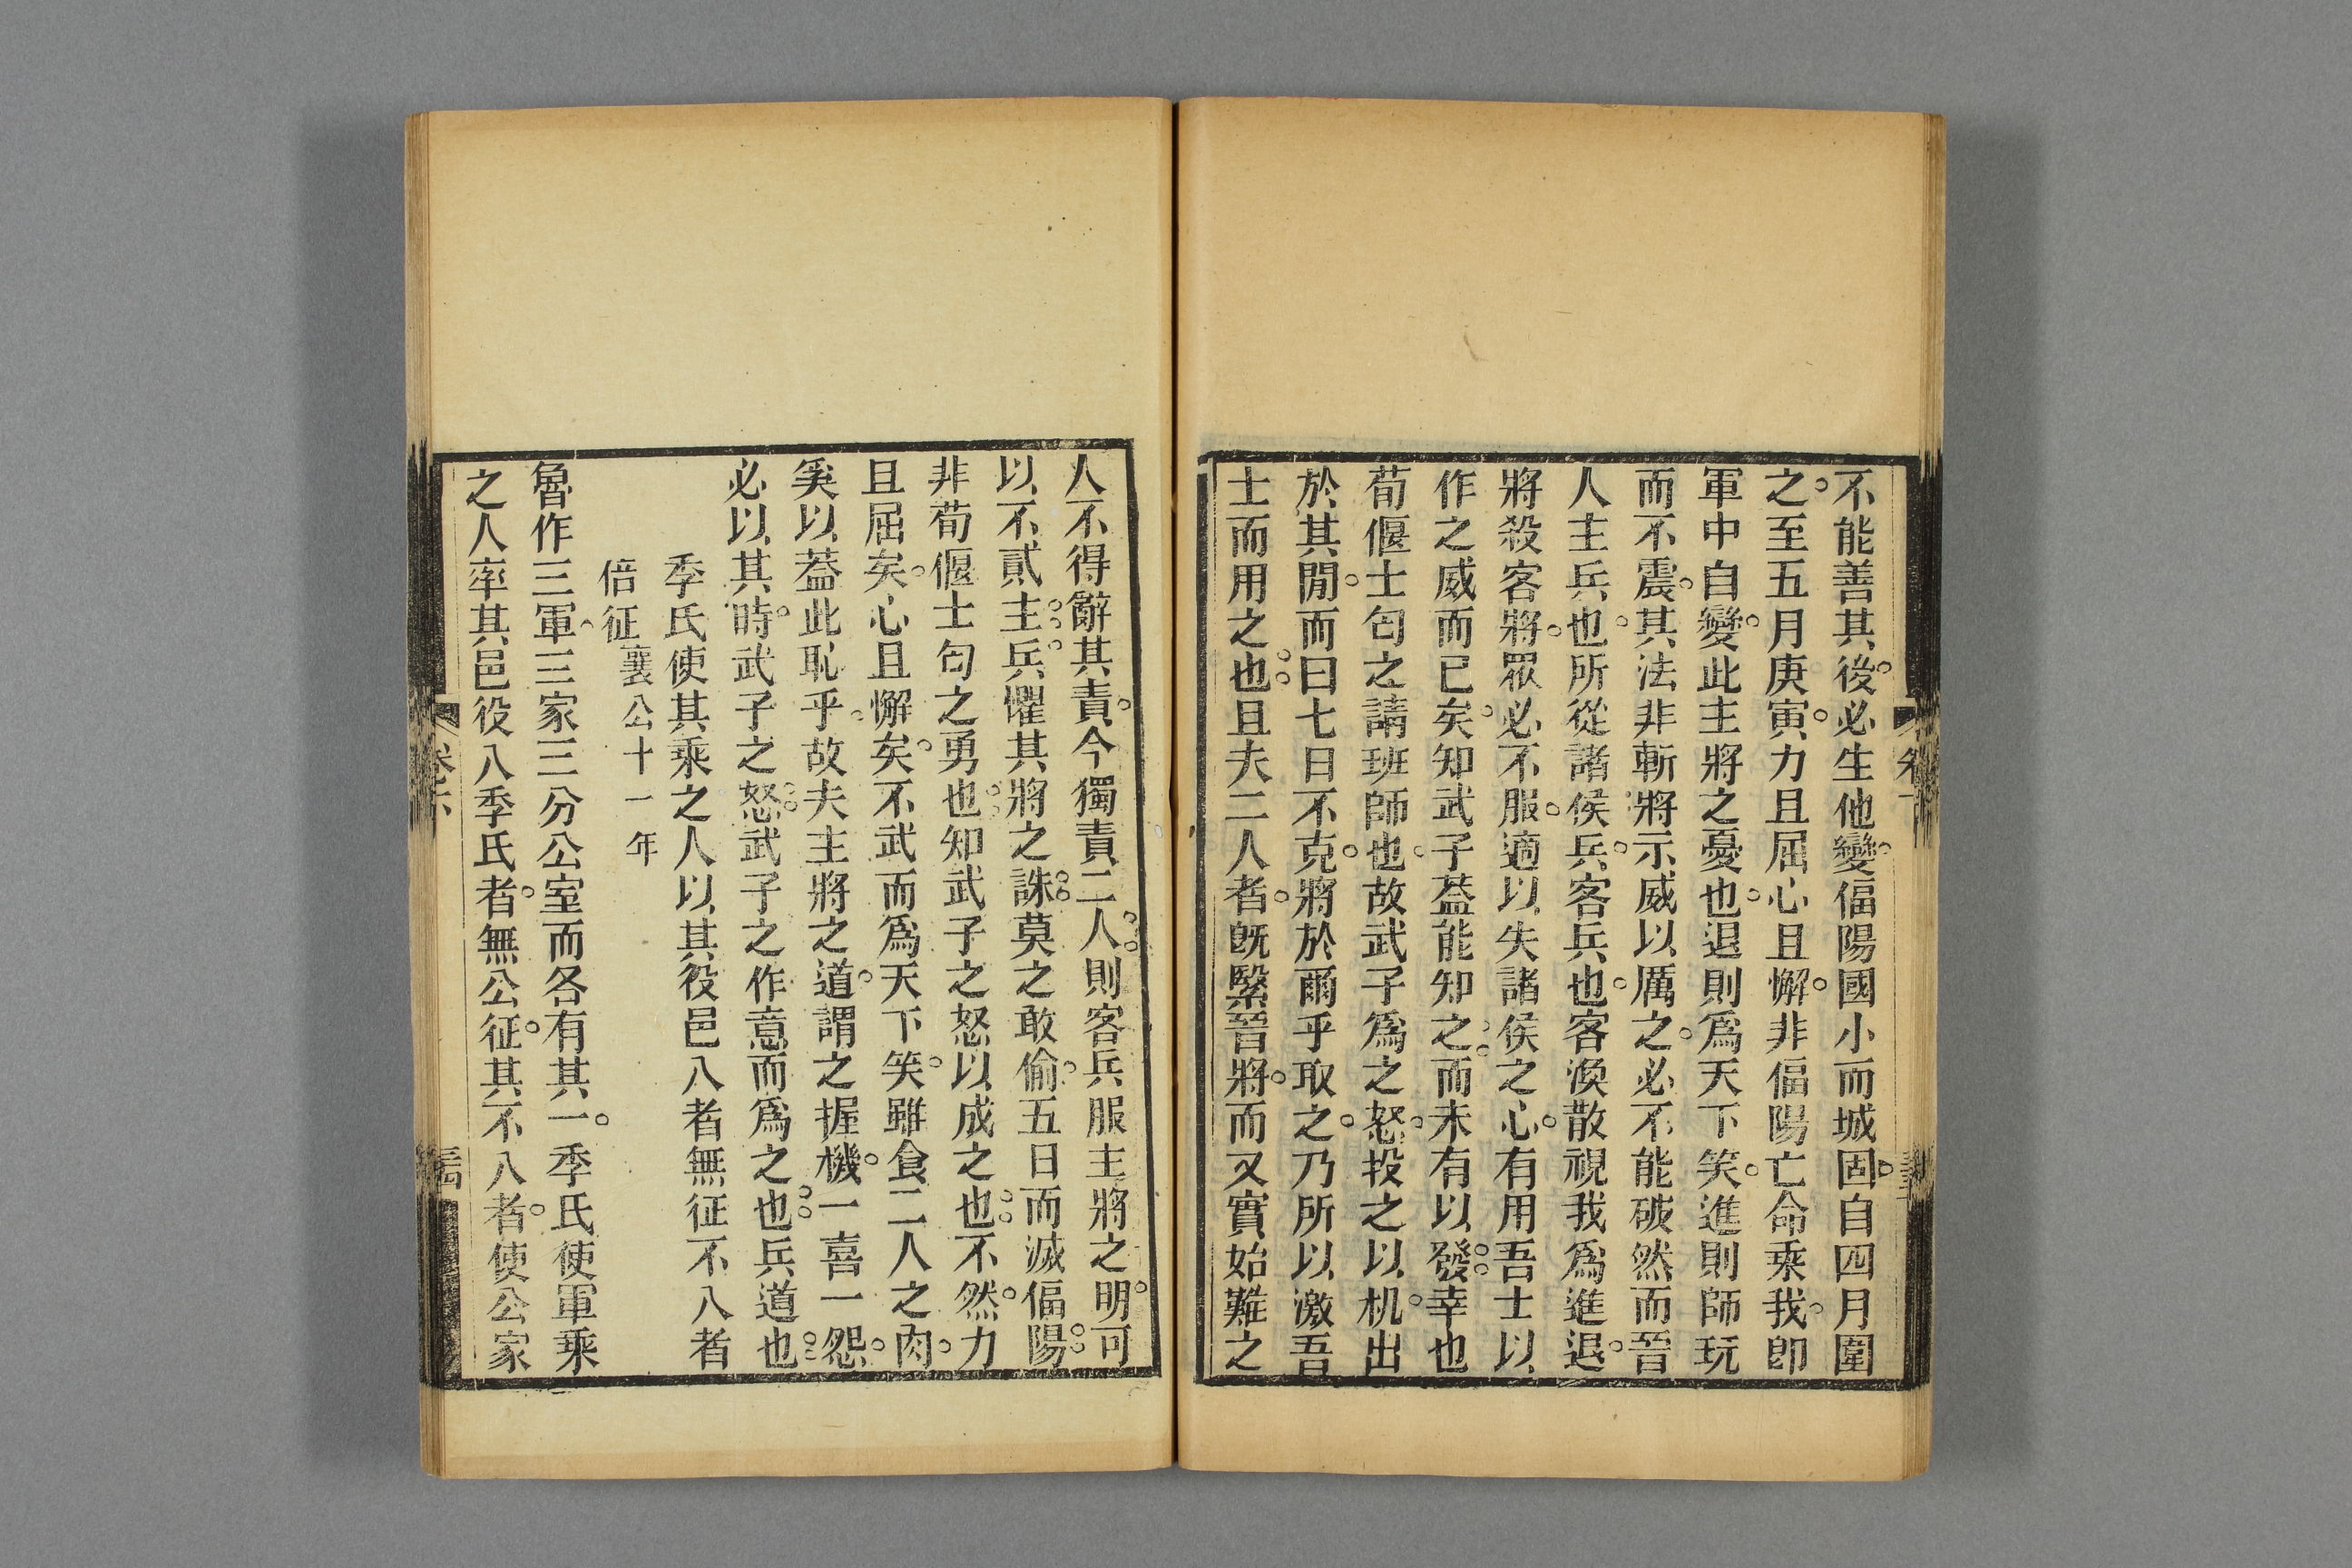 不能善其後必生他變偪陽國小而城固自四月圍
之至五月庚寅力且屈心且懈非偪陽亡命乘我卽
軍中自變此主將之憂也退則爲天下笑進則師玩
而不震其法非斬將示威以厲之必不能破然而晉
人主兵也所從諸侯兵客兵也客渙散視我爲進退
將殺客將眾必不服適以失諸侯之心有用吾士以
作之威而已矣知武子葢能知之而未有以發幸也
荀偃士匄之請班師也故武子爲之怒投之以机出
於其閒而曰七日不克將於爾乎取之乃所以激吾
士而用之也且夫二人者旣緊晉將而又實始難之
人不得辭其責今獨責二人則客兵服主將之明可
以不貳主兵懼其將之誅莫之敢偷五日而滅偪陽
非荀偃士匄之勇也知武子之怒以成之也不然力
且屈矣心且懈矣不武而爲天下笑雖食二人之肉
奚以葢此恥乎故夫主將之道謂之握機一喜一怨
必以其時武子之怒武子之作意而爲之也兵道也
季氏使其乘之人以其役邑入者無征不入者
倍征襄公十一年
魯作三軍三家三分公室而各有其一季氏使軍乘
之人率其邑役入季氏者無公征其不入者使公家